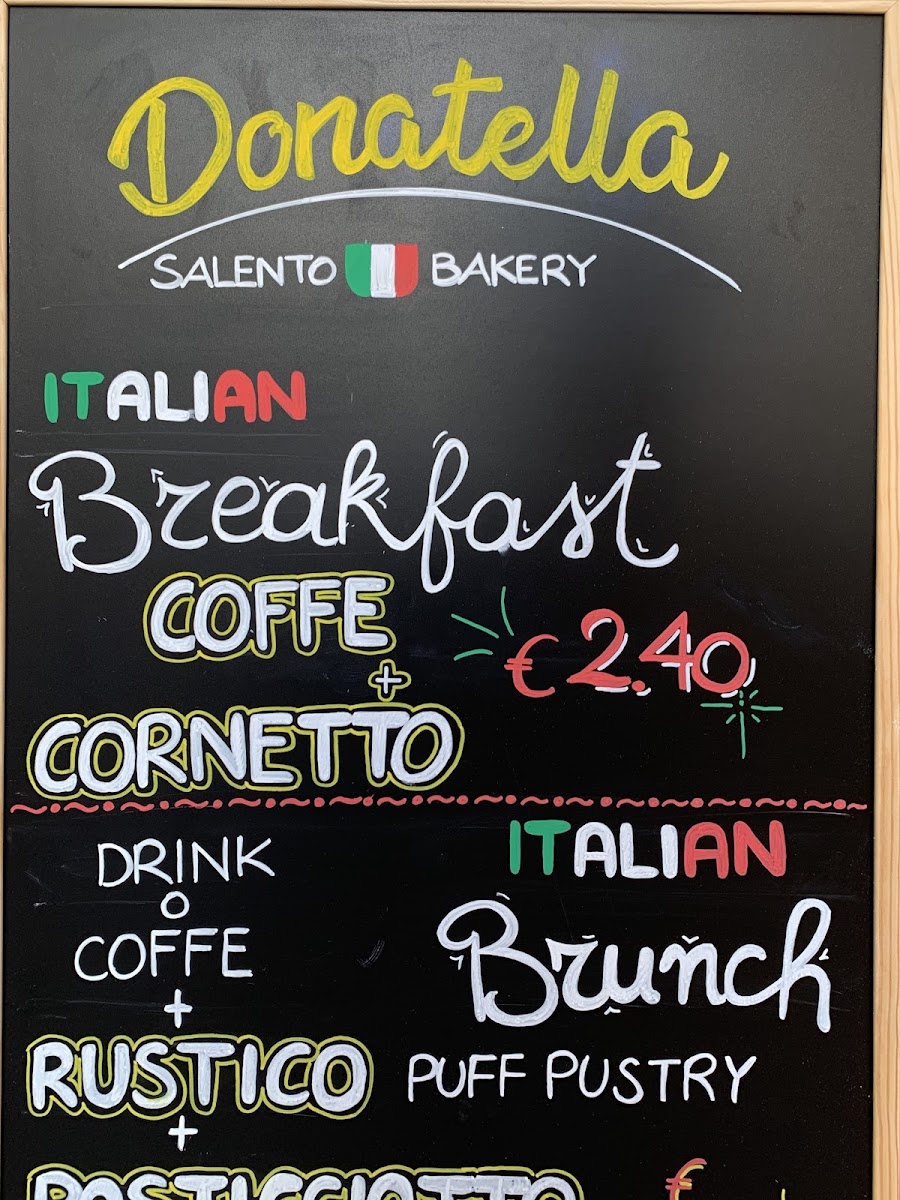 Donatella
SALENTO BAKERY
ITALIAN
Breakfast
COFFE
+
€ 2.40
CORNETTO
DRINK
O
COFFE
+
RUSTICO
+
ITALIAN
Brunch
PUFF PUSTRY
€